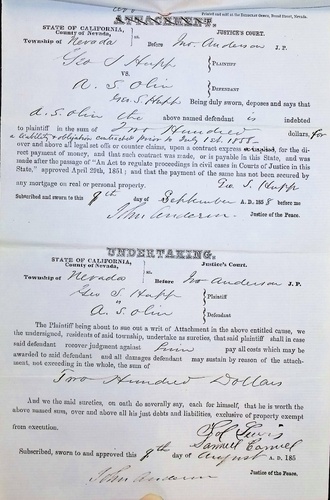 Printed and sold at the Democrat Office, Broad Street, Nevada.
ATTACHMENT.
STATE OF CALIFORNIA, County of Nevada, JUSTICE'S COURT.
Township of Nevada ss. Before Jno Anderson J. P.
Geo S Hupp PLAINTIFF
VS.
A. S. Olin DEFENDANT
Geo. S. Hupp Being duly sworn, deposes and says that
A. S. Olin the above named defendant is indebted
to plaintiff in the sum of Two Hundred dollars, for
a liability & obligation contracted prior to July 1st 1858
over and above all legal set offs or counter claims, upon a contract express or implied, for the di-
rect payment of money, and that such contract was made, or is payable in this State, and was
made after the passage of "An Act to regulate proceedings in civil cases in Courts of Justice in this
State," approved April 29th, 1851; and that the payment of the same has not been secured by
any mortgage on real or personal property. Geo S. Hupp
Subscribed and sworn to this 9th day of September A. D. 1858 before me
John Anderson Justice of the Peace.
UNDERTAKING.
STATE OF CALIFORNIA, County of Nevada, Justice's Court.
Township of Nevada ss. Before Jno Anderson J. P.
Geo S. Hupp Plaintiff
vs
A. S. Olin Defendant
The Plaintiff being about to sue out a writ of Attachment in the above entitled cause, we
the undersigned, residents of said township, undertake as sureties, that said plaintiff shall in case
said defendant recover judgment against him pay all costs which may be
awarded to said defendant and all damages defendant may sustain by reason of the attach-
ment, not exceeding in the whole, the sum of
Two Hundred Dollars
And we the said sureties, on oath do severally say, each for himself, that he is worth the
above named sum, over and above all his just debts and liabilities, exclusive of property exempt
from execution.
Lewis
Samuel
Subscribed, sworn to and approved this 9th day of August A. D. 185
John Anderson Justice of the Peace.